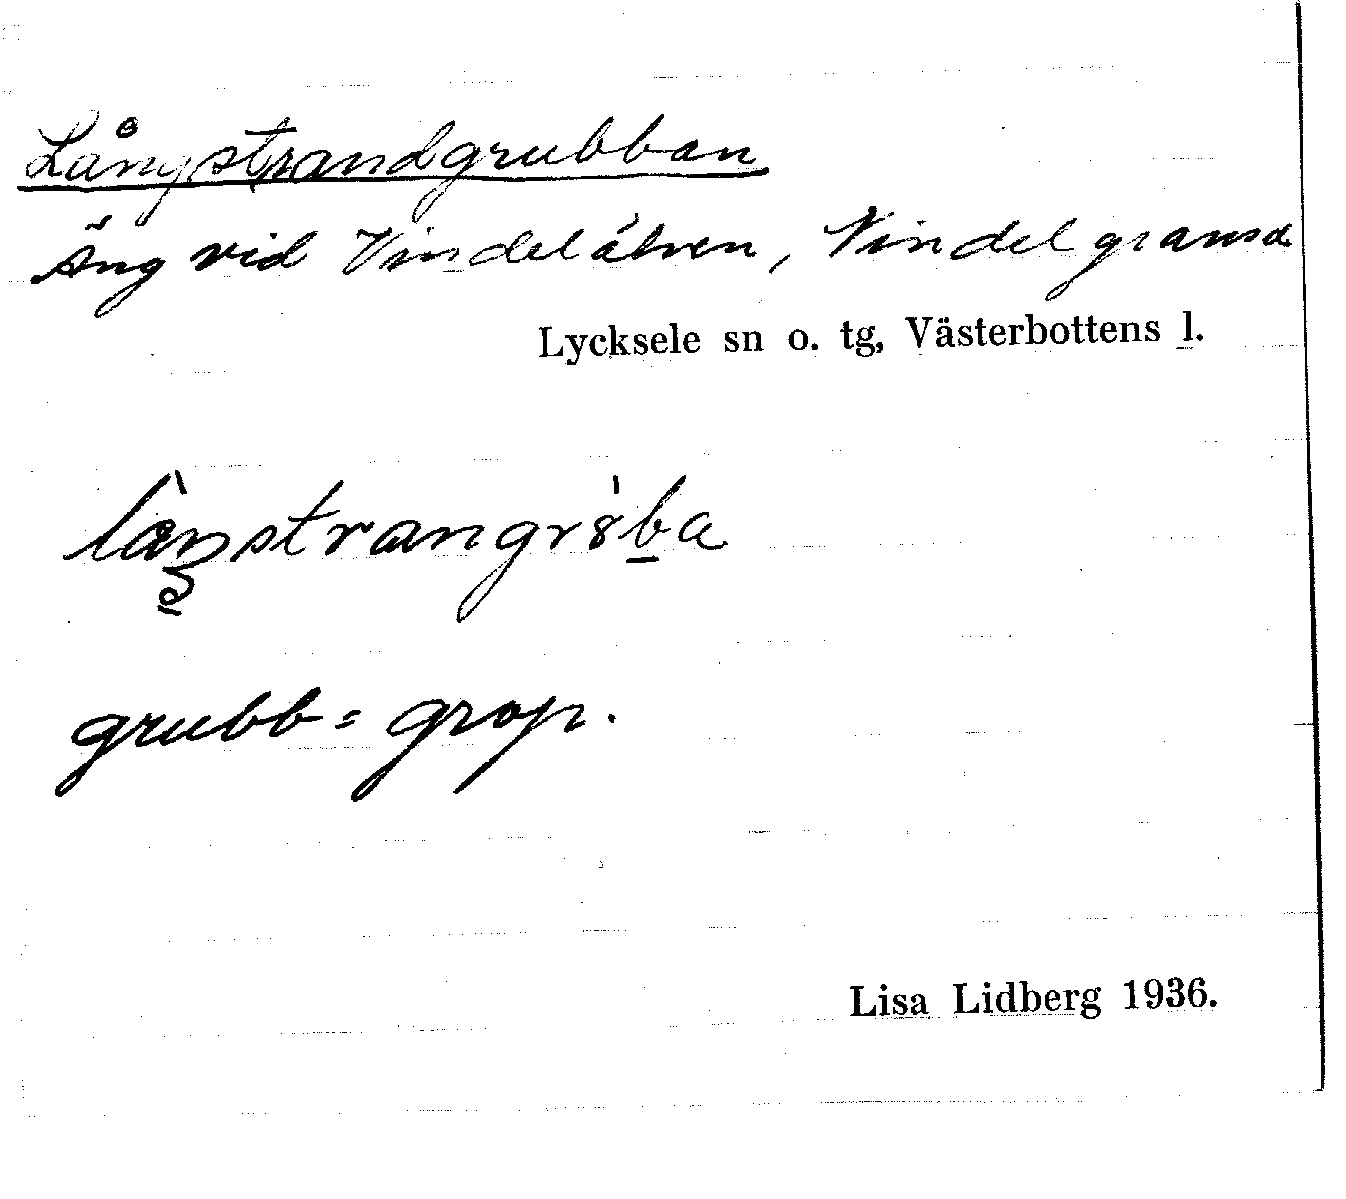 Långstrandgrubban
Äng vid Vindelälven, Vindelgransele
Lycksele sn o. tg, Västerbottens l.
grubb = grop.
Lisa Lidberg 1936.